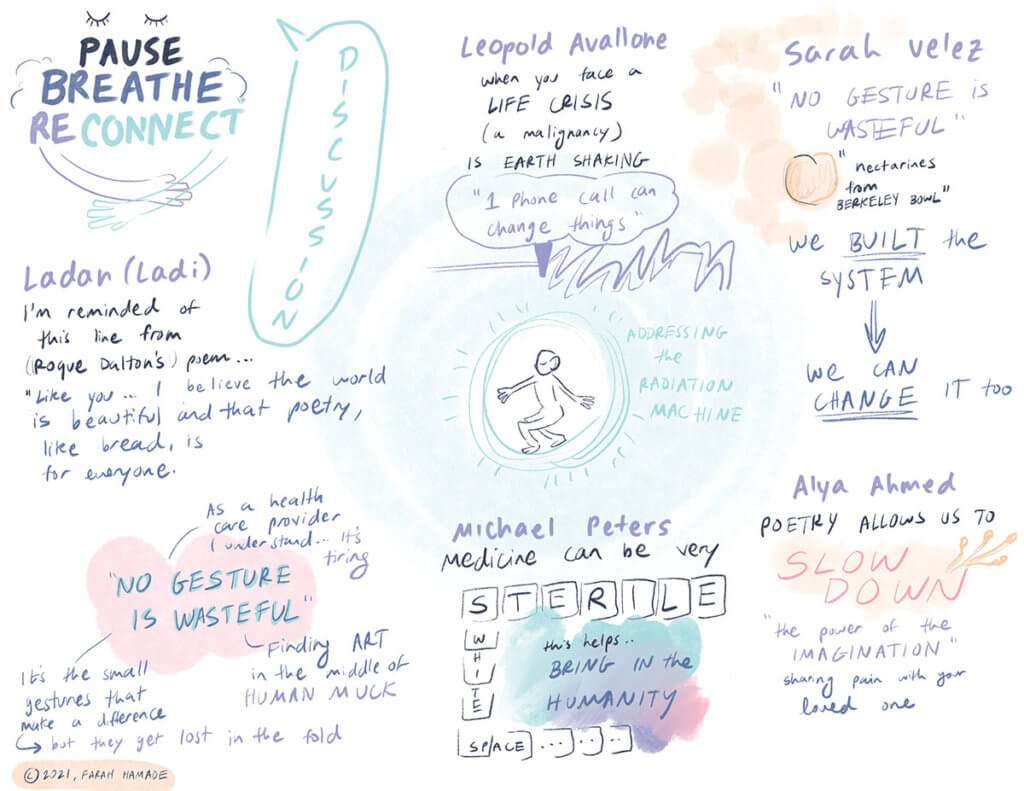 PAUSE
BREATHE
RECONNECT
DISCUSSION
Leopold Avallone
when you face a
LIFE CRISIS
(a malignancy)
IS EARTH SHAKING
"1 Phone call can
change things"
Sarah Velez
"NO GESTURE is
WASTEFUL"
"nectarines
from
BERKELEY BOWL"
We BUILT the
SYSTEM
We CAN
CHANGE IT too
Ladan (Ladi)
I'm reminded of
this line from
(Roque Dalton's) poem...
"Like you... I believe the world
is beautiful and that poetry,
like bread, is
for everyone.
ADDRESSING
the
RADIATION
MACHINE
As a health
care provider
I understand... It's
tiring
"NO GESTURE
IS WASTEFUL"
Finding ART
in the middle of
HUMAN MUCK
It's the small
gestures that
make a difference
but they get lost in the fold
Michael Peters
Medicine can be very
STERILE
WHITE
SPACE ...
this helps..
BRING IN the
HUMANITY
Alya Ahmed
POETRY ALLOWS US TO
SLOW
DOWN
"the power of the
IMAGINATION"
sharing pain with your
loved one
© 2021, FARAH HAMADE